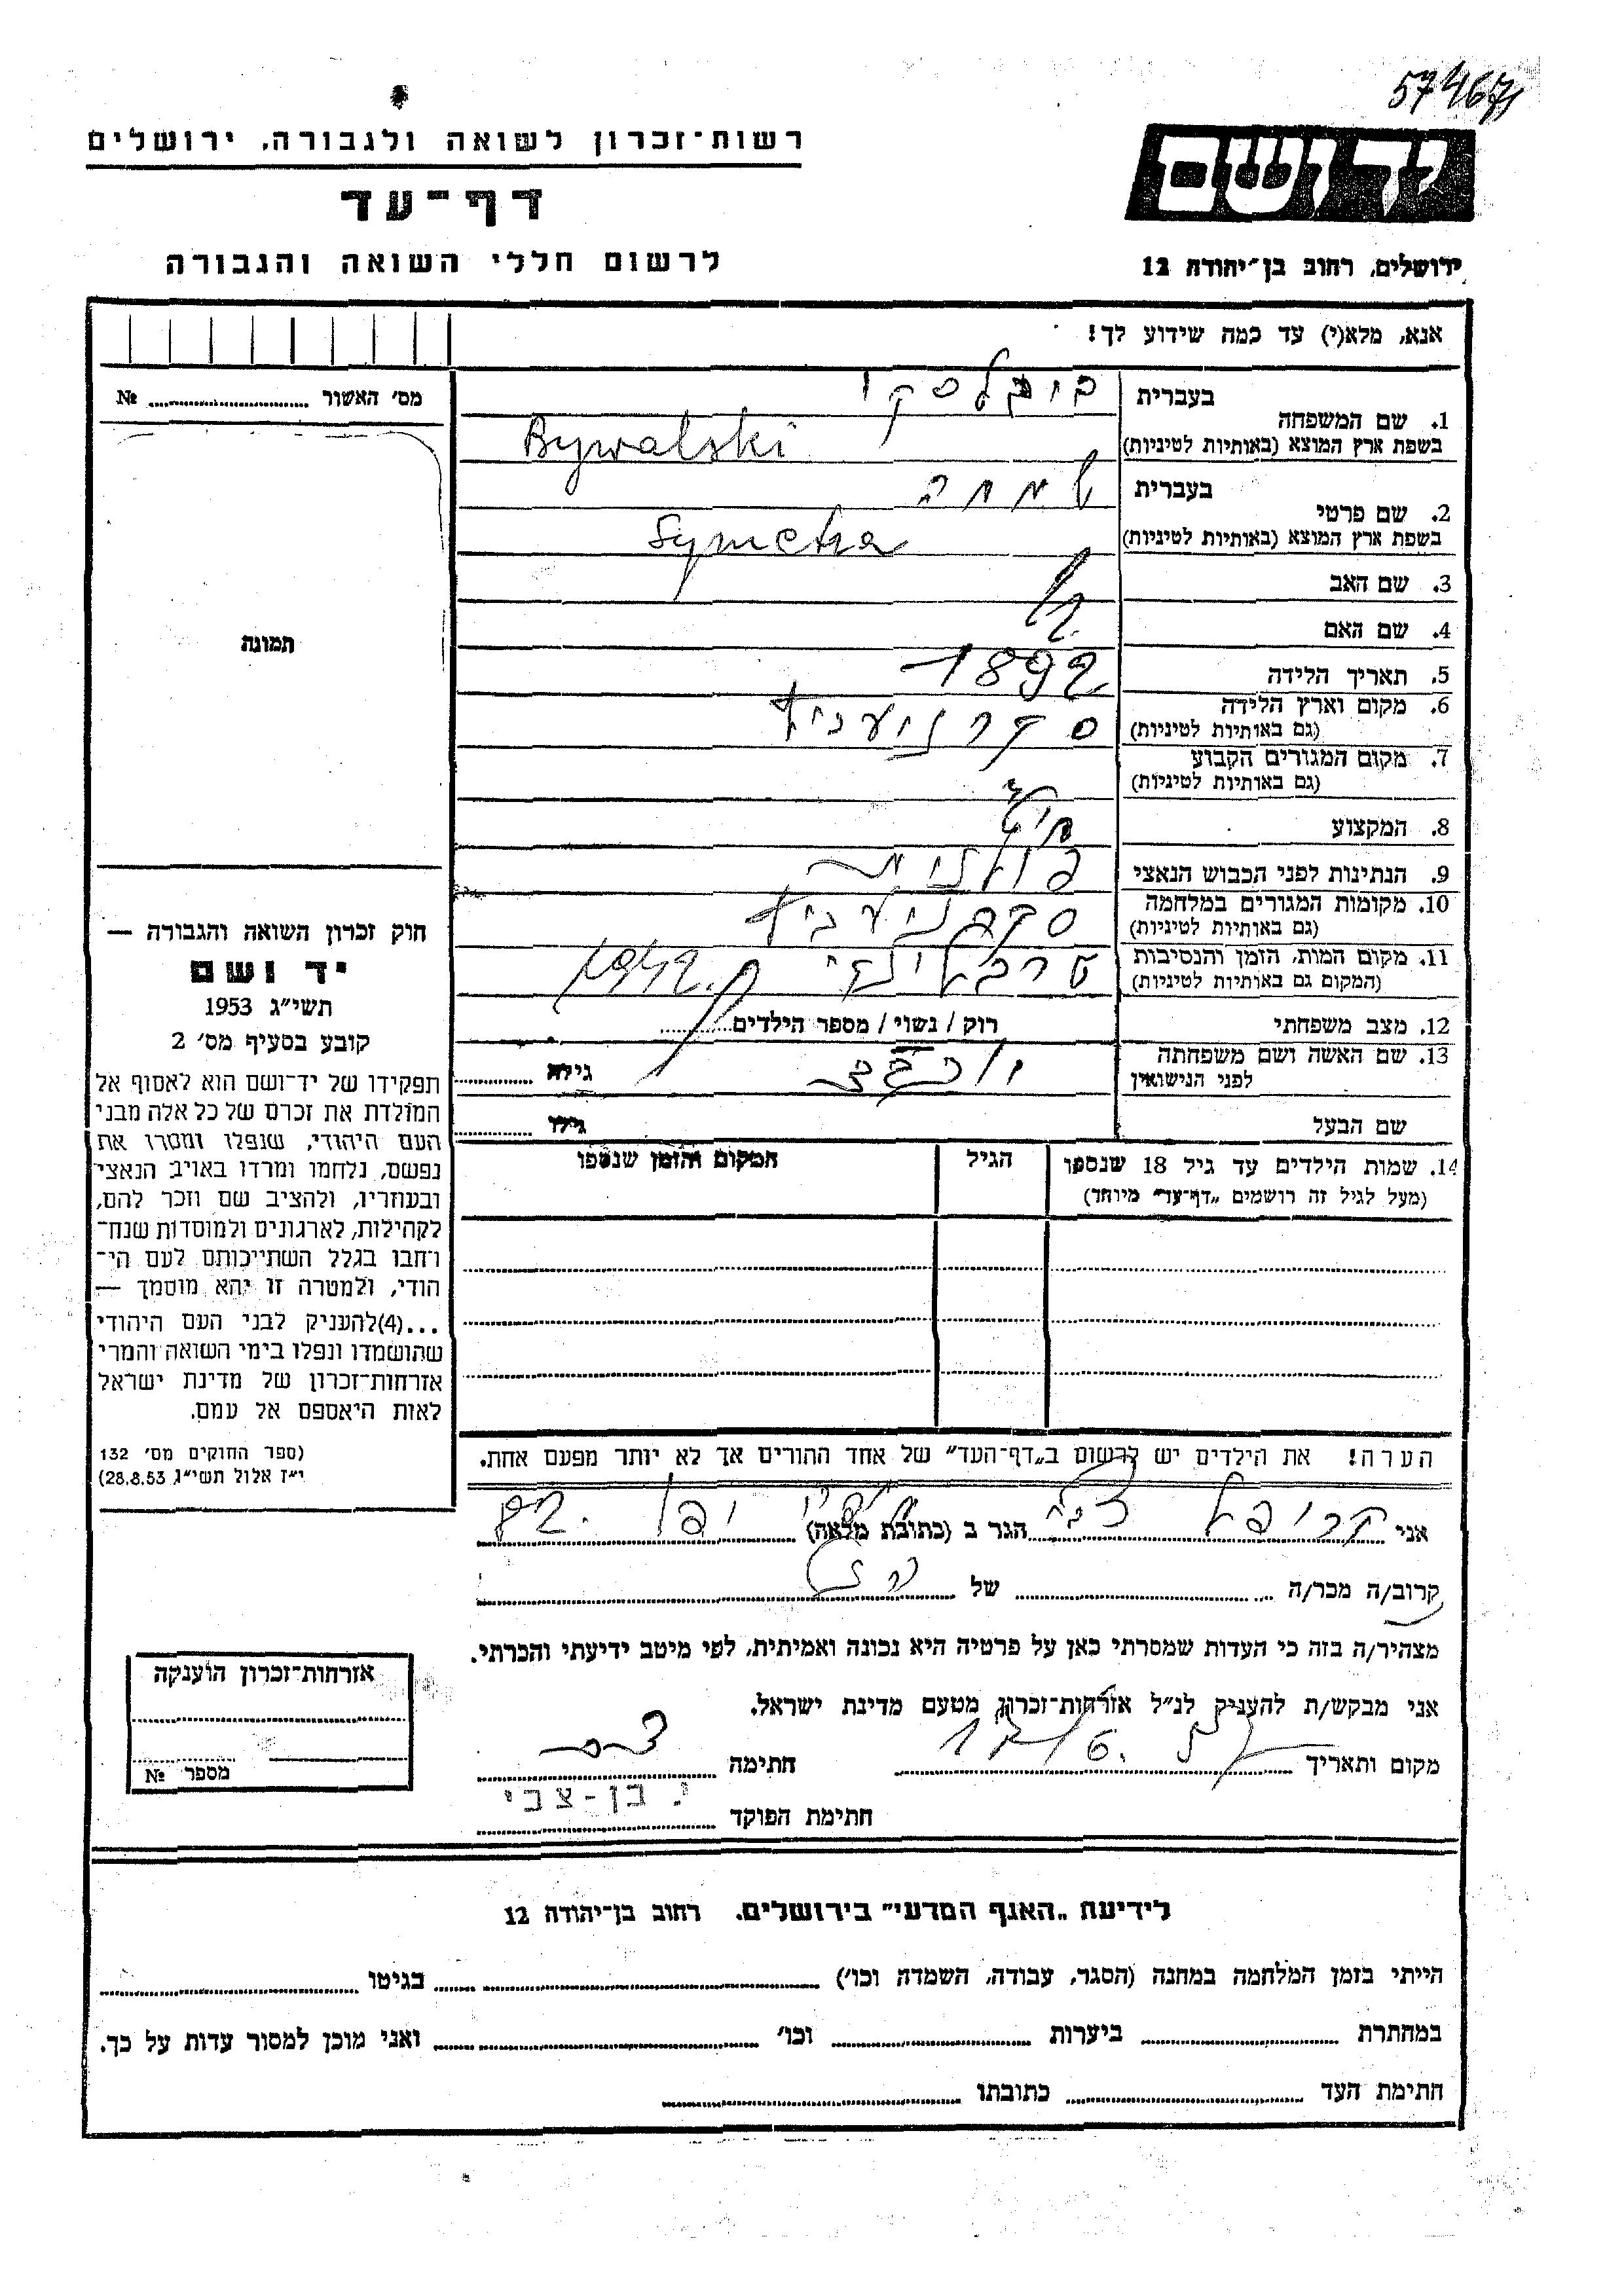 57467
רשות־זכרון לשואה ולגבורה, ירושלים
יד ושם
דף־עד
לרשום חללי השואה והגבורה
ירושלים, רחוב בן־יהודה 12
אנא, מלא(י) עד כמה שידוע לך!
מס׳ האשור № 
1. שם המשפחה
בעברית
בשפת ארץ המוצא (באותיות לטיניות) Bywalski
2. שם פרטי
בעברית שמחה
בשפת ארץ המוצא (באותיות לטיניות) Symcha
3. שם האב
4. שם האם
5. תאריך הלידה 1892
6. מקום וארץ הלידה
(גם באותיות לטיניות)
7. מקום המגורים הקבוע
(גם באותיות לטיניות)
8. המקצוע
9. הנתינות לפני הכבוש הנאצי פולנית
10. מקומות המגורים במלחמה
(גם באותיות לטיניות)
11. מקום המות, הזמן והנסיבות
(המקום גם באותיות לטיניות)
טרבלינקי 1942
12. מצב משפחתי רוק / נשוי / מספר הילדים
13. שם האשה ושם משפחתה
לפני הנישואין
גילה
שם הבעל גילו
14. שמות הילדים עד גיל 18 שנספו
(מעל לגיל זה רושמים „דף־עד״ מיוחד)
הגיל
המקום והזמן שנספו
תמונה
חוק זכרון השואה והגבורה —
יד ושם
תשי״ג 1953
קובע בסעיף מס׳ 2
תפקידו של יד־ושם הוא לאסוף אל
המולדת את זכרם של כל אלה מבני
העם היהודי, שנפלו ומסרו את
נפשם, נלחמו ומרדו באויב הנאצי
ובעוזריו, ולהציב שם וזכר להם,
לקהילות, לארגונים ולמוסדות שנח־
רבו בגלל השתייכותם לעם הי־
הודי, ולמטרה זו יהא מוסמך —
...(4)להעניק לבני העם היהודי
שהושמדו ונפלו בימי השואה והמרי
אזרחות־זכרון של מדינת ישראל
לאות היאספם אל עמם.
(ספר החוקים מס׳ 132
י״ז אלול תשי״ג 28.8.53)
הערה! את הילדים יש לרשום ב„דף־העד״ של אחד ההורים אך לא יותר מפעם אחת.
אני הגר ב (כתובת מלאה) יפו
קרוב/ה מכר/ה של
מצהיר/ה בזה כי העדות שמסרתי כאן על פרטיה היא נכונה ואמיתית, לפי מיטב ידיעתי והכרתי.
אני מבקש/ת להעניק לנ״ל אזרחות־זכרון מטעם מדינת ישראל.
מקום ותאריך חתימה
חתימת הפוקד י. בן-צבי
אזרחות־זכרון הוענקה
מספר №
לידיעת „האגף המדעי״ בירושלים, רחוב בן־יהודה 12
הייתי בזמן המלחמה במחנה (הסגר, עבודה, השמדה וכו׳) בגיטו
במחתרת ביערות וכו׳ ואני מוכן למסור עדות על כך.
חתימת העד כתובתו